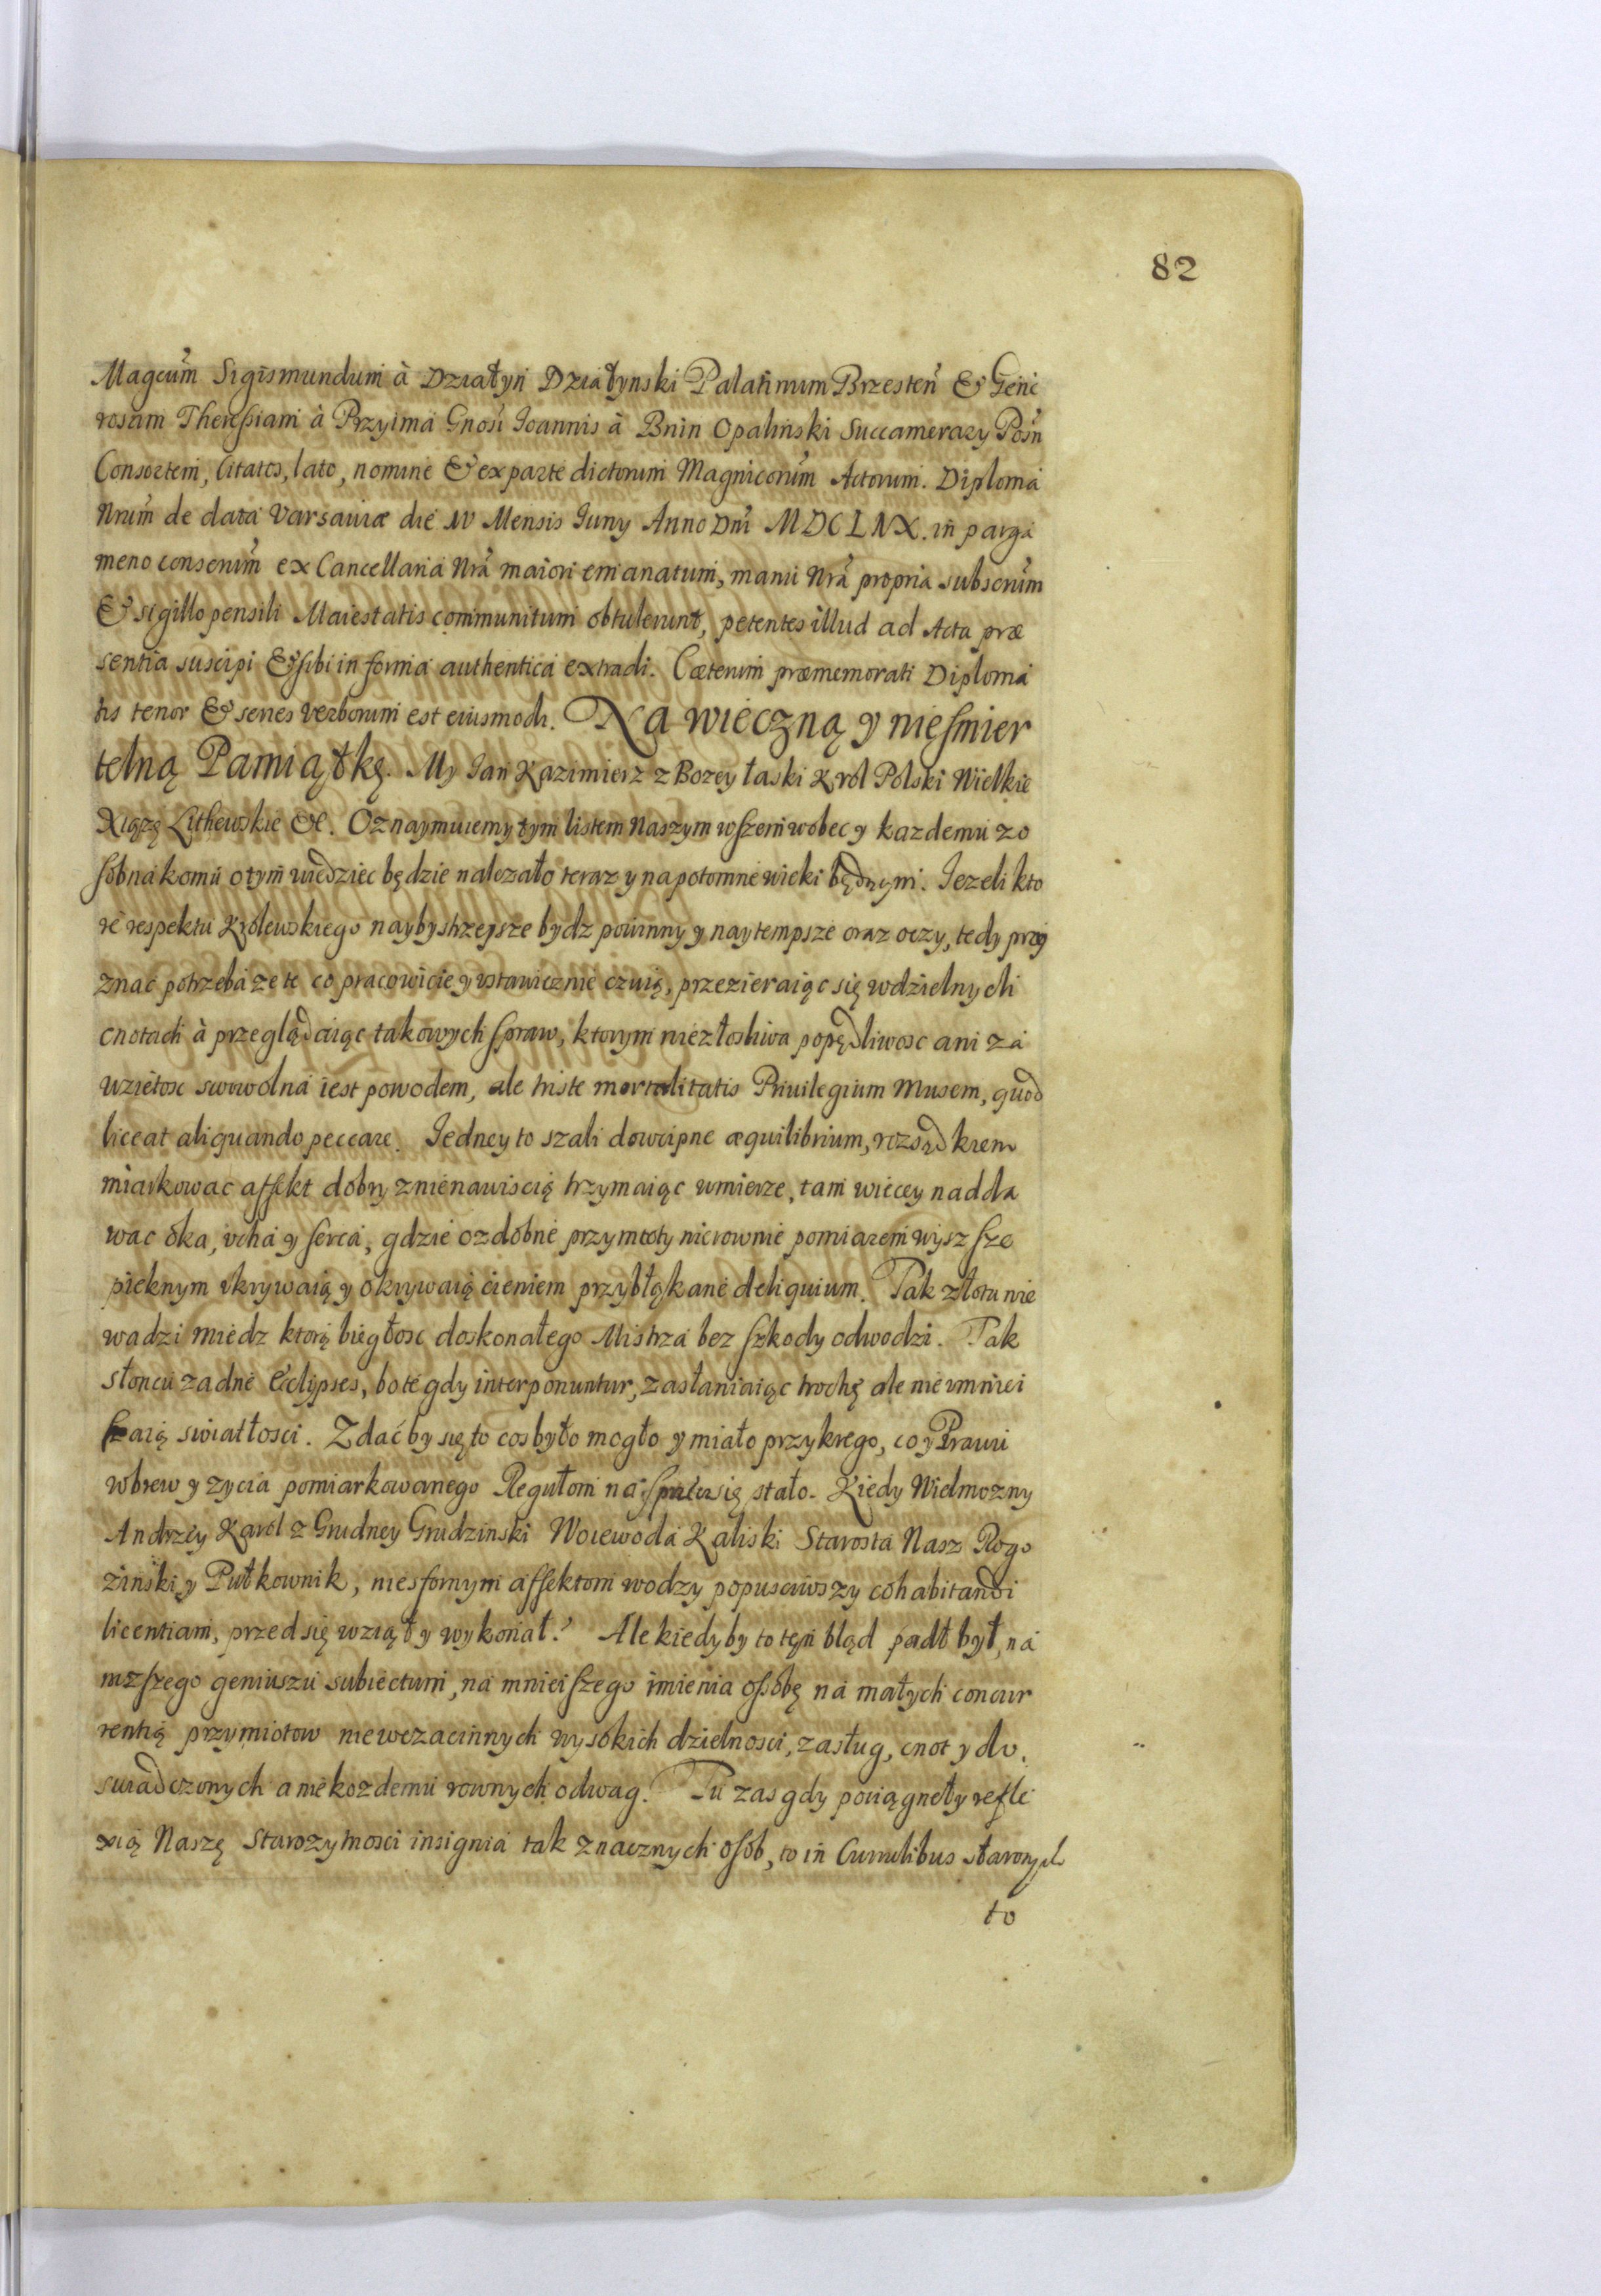 82
Magcum̃ Sigismundum à Działyń Działynski Palatinum Brzesten̄ & Gene
rosam Theressiam à Przyima Gnosi Ioannis à Bnin Opaliński Succamerary Posn̄
Consortem, Citatos, lato, nomine & ex parte dictorum Magnicorum̃ Actorum. Diploma
Nrum̃ de data Varsaviæ die IV Mensis Iuny Anno Dni MDCLXX. in parga
meno conscrium̃ ex Cancellaria Nrã maiori emanatum, manu Nrã propria subscrium̃
& sigillo pensili Maiestatis communitum obtulerunt, petentes illud ad Acta præ
sentia suscipi & sibi in forma authentica extradi. Cæterum præmemorati Diploma
tis tenor & series verborum est eiusmodi. Na wieczną y nieśmier
telną Pamiątkę. My Ian Kazimierz z Bozey łaski Krol Polski Wielkie
Xiążę Lithewskie &c. Oznaymuiemy tym listem Naszym wszem wobec y kazdemu zo
sobna komu otym wiedziec będzie nalezało teraz y na potomne wieki będącym. Iezeli kto
re respektu Krolewskiego naybystrzejsze bydz powinny y naytempsze oraz oczy, tedy przy
znac potrzeba ze te co pracowicie y ustawicznie czuią, przezieraiąc się wdzielnych
cnotach à przeglądaiąc takowych spraw, ktorym niezłosliwa popędliwosc ani za
wziętosc swowolna iest powodem, ale triste mortalitatis Privilegium Musem, quod
liceat aliquando peccare. Iedney to szali dowcipne æquilibrium, rozsądkiem
miarkowac affekt dobry znienawiscią trzymaiąc wmierze, tam więcey nadda
wac oka, ucha y serca, gdzie ozdobne przymioty nierownie pomiarem wyszsze
pieknym ukrywaią y okrywaią cieniem przybłąkane deliquium. Tak złotu nie
wadzi miedz ktorą biegłosc doskonałego Mistrza bez szkody odwodzi. Tak
słoncu zadne Eclipses, bo te gdy interponuntur, zasłaniaiąc trochę ale nie umniei
szaią swiatłosci. Zdać by się to cos było mogło y miało przykrego, co y Prawu
wbrew y zycia pomiarkowanego Regułom na się stało. Kiedy Wielmozny
Andrzey Karol z Grudney Grudzinski Woiewoda Kaliski Starosta Nasz Rogo
zinski y Pułkownik, niesfornym affektom wodzy popusciwszy cohabitandi
licentiam, przedsię wziął y wykonał? Ale kiedyby to ten błąd padł był, na
nizszego geniuszu subiectum, na mnieiszego imienia osobę na małych concur
rentią przymiotow niewczacinnych wysokich dzielnosci, zasług, cnot y do
swiadczonych a niekozdemu rownych odwag. Tu zas gdy pociągneły refle
xią Naszę Starozytnosci insignia tak znacznych osob, to in Curulibus staronych
to